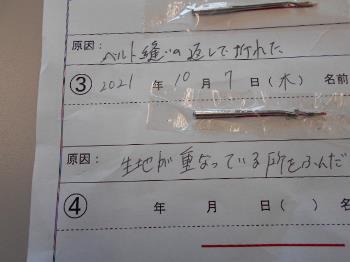 原因： ベルト縫いの返しで折れた
③ 2021 年 10 月 7 日（水） 名前
原因： 生地が重なっている所をふんだ
④ 年 月 日（ ） 名